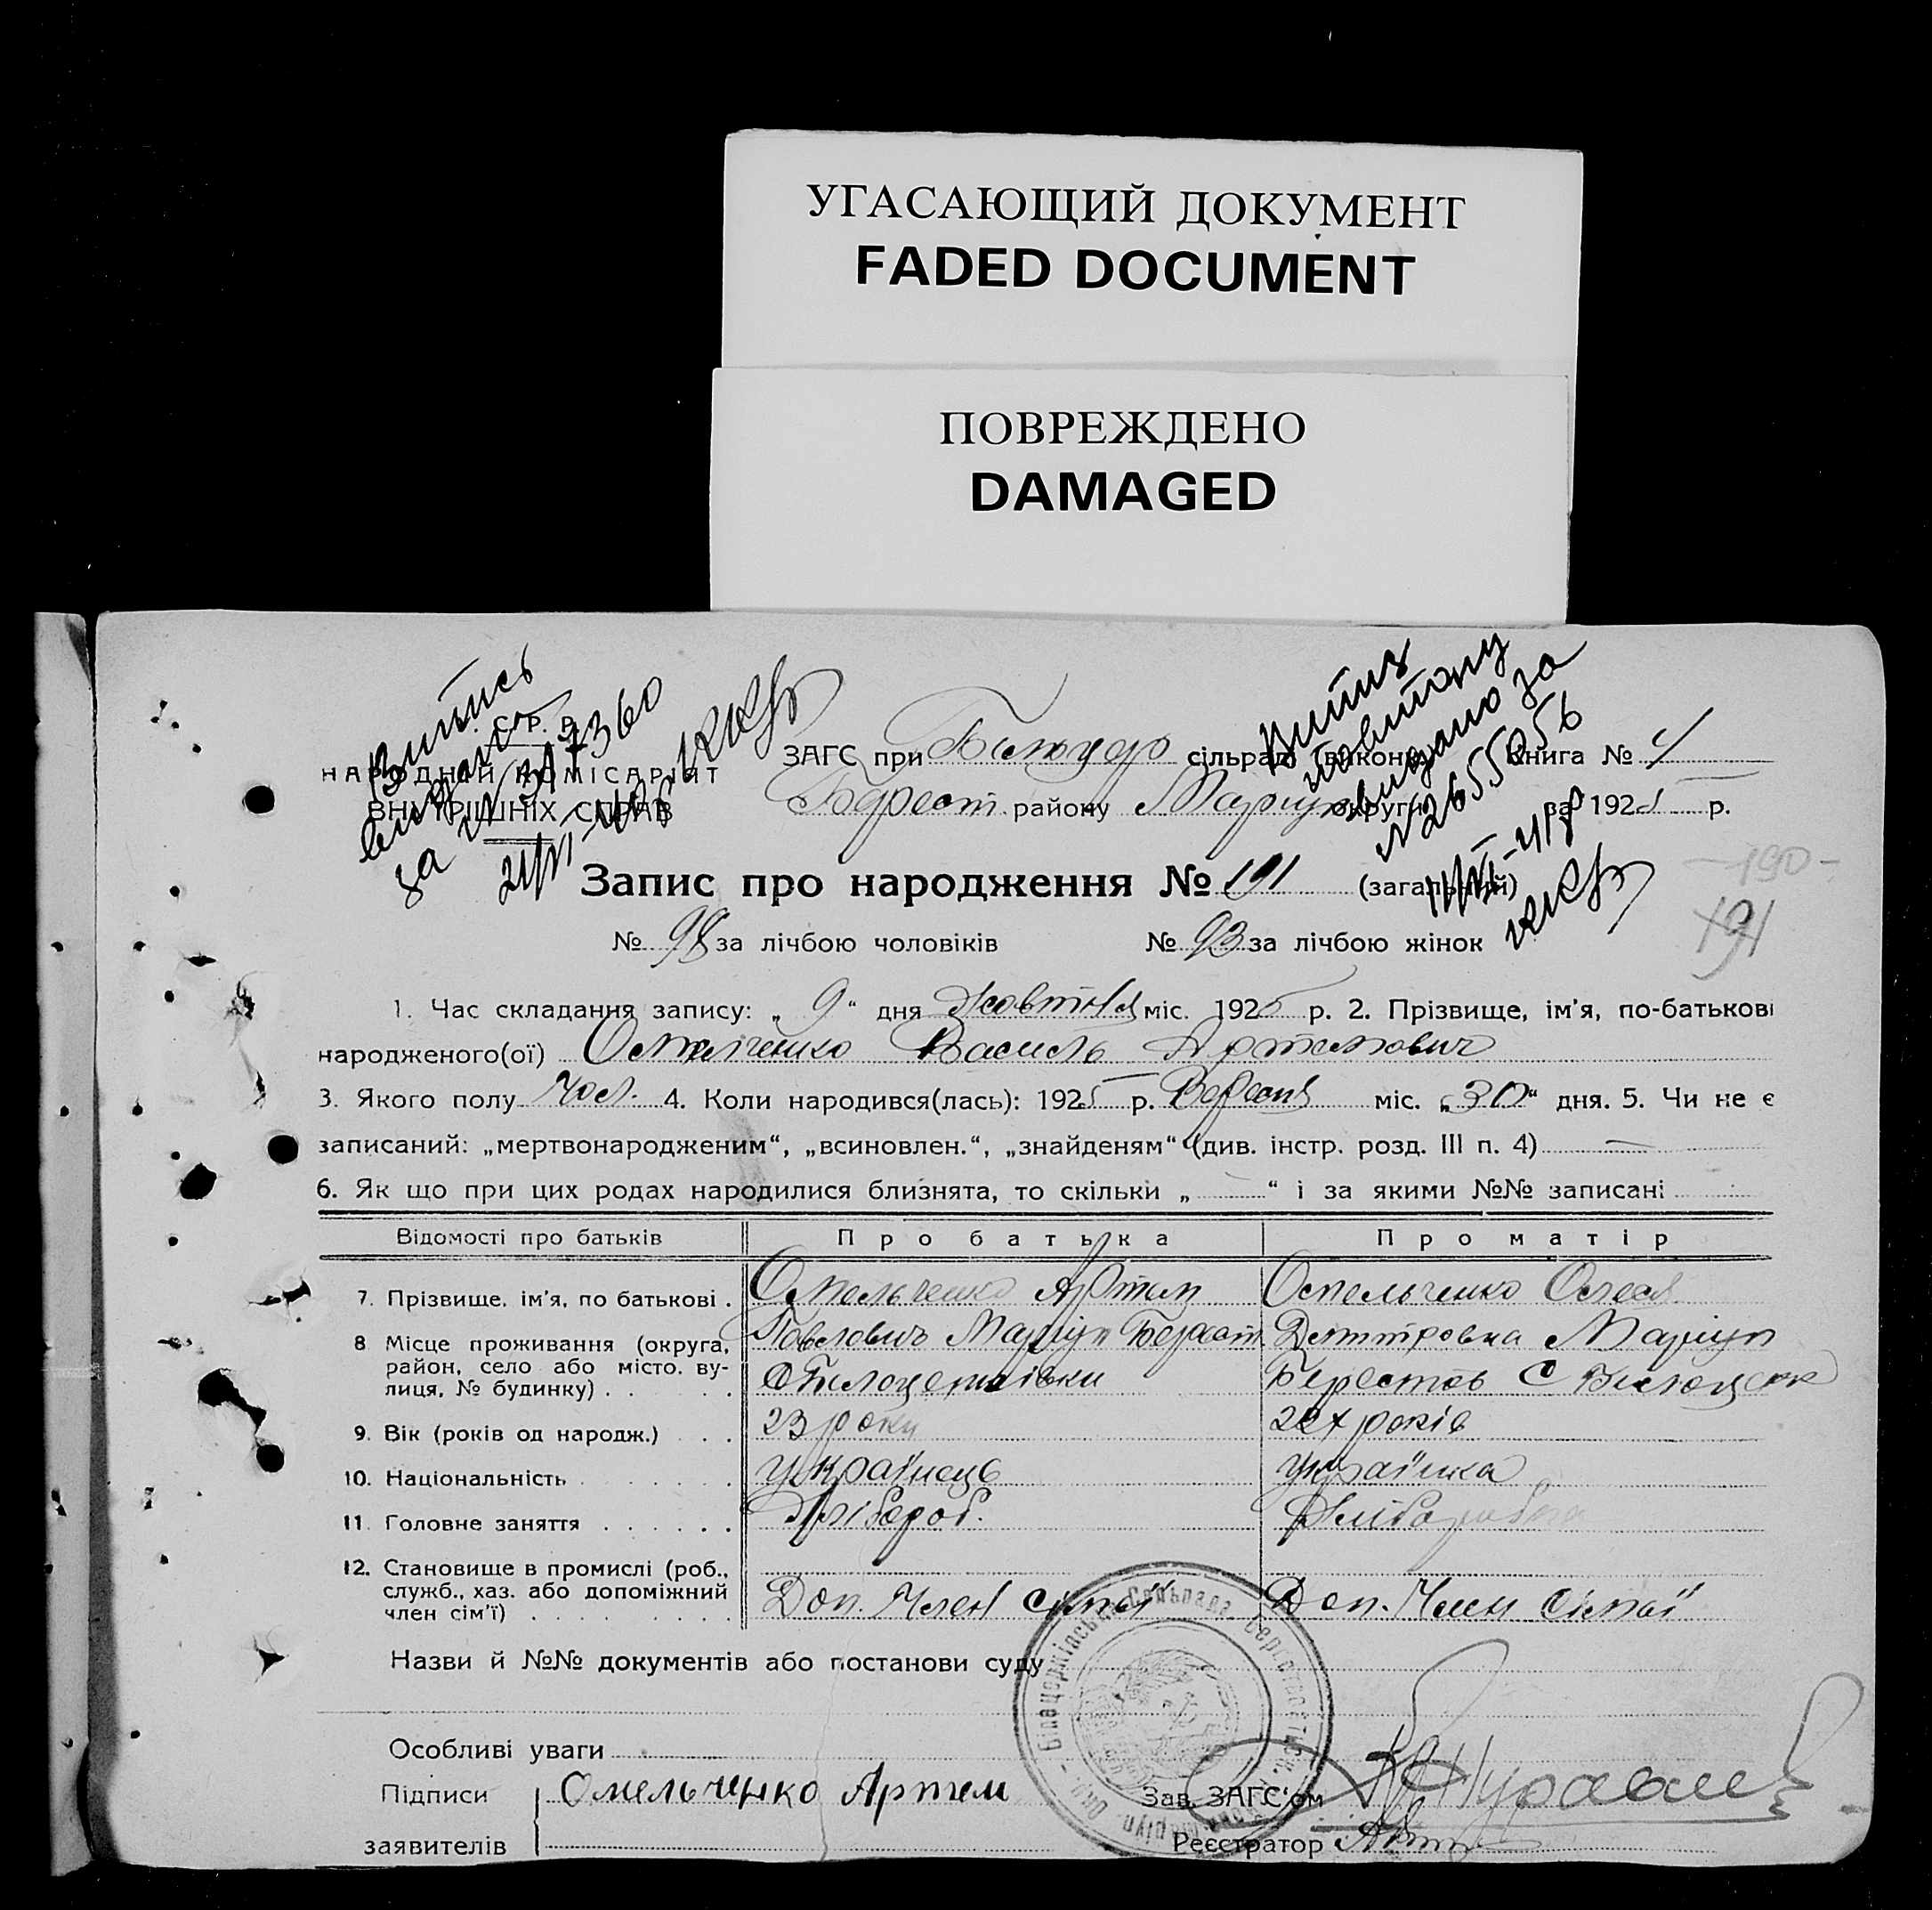 УГАСАЮЩИЙ ДОКУМЕНТ
FADED DOCUMENT
ПОВРЕЖДЕНО
DAMAGED
Витпись
видано
за № 317360
Витяг
повитону
видано за
№ 2655056
У.С.Р.Р.
НАРОДНІЙ КОМІСАРІЯТ
ВНУТРІШНІХ СПРАВ
ЗАГС при сільраді (виконк.) Книга № 4
Берест. району Маріуп. округи за 1925 р.
Запис про народження № 191 (загальний)
- 190 -
191
№ 98 за лічбою чоловіків № 93 за лічбою жінок
1. Час складання запису: „ 9 “ дня Жовтня міс. 1925 р. 2. Прізвище, ім'я, по-батькові
народженого(ої) Омельченко Василь Артемович
3. Якого полу Чол. 4. Коли народився(лась): 1925 р. Вересня міс. „30“ дня. 5. Чи не є
записаний: „мертвонародженим“, „всиновлен.“, „знайденям“ (див. інстр. розд. III п. 4) —
6. Як що при цих родах народилися близнята, то скільки „ “ і за якими №№ записані
Відомості про батьків Про батька Про матір
7. Прізвище, ім'я, по батькові . Омельченко Артем Омельченко Олеся
8 Місце проживання (округа, район, село або місто, вулиця, № будинку) . . . . Павлович Маріуп Берест. Дмитровна Маріуп
С Билоцерківки Берестов С Билоцерк
9. Вік (років од народж.) . . . 23 роки 22 років
10. Національність . . . . . . . українець українка
11. Головне заняття . . . . . . Хлібороб. Хлібороб
12. Становище в промислі (роб., служб., хаз. або допоміжний член сім'ї) . . . . . . . . . Доп. Член сімї Доп. Член сімьї
Назви й №№ документів або постанови суду
Особливі уваги
Підписи Омельченко Артем Зав. ЗАГС'ом
заявителів Реєстратор